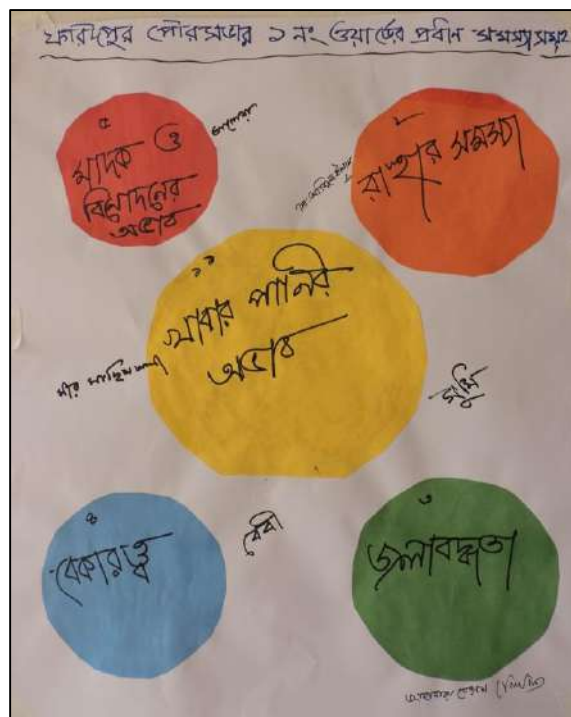 ফরিদপুর পৌরসভার ১ নং ওয়ার্ডের প্রধান সমস্যাসমূহ
৫
মাদক ও
বিনোদনের
অভাব
রাস্তার সমস্যা
১
খাবার পানির
অভাব
৪
বেকারত্ব
বেবী
৩
জলাবদ্ধতা